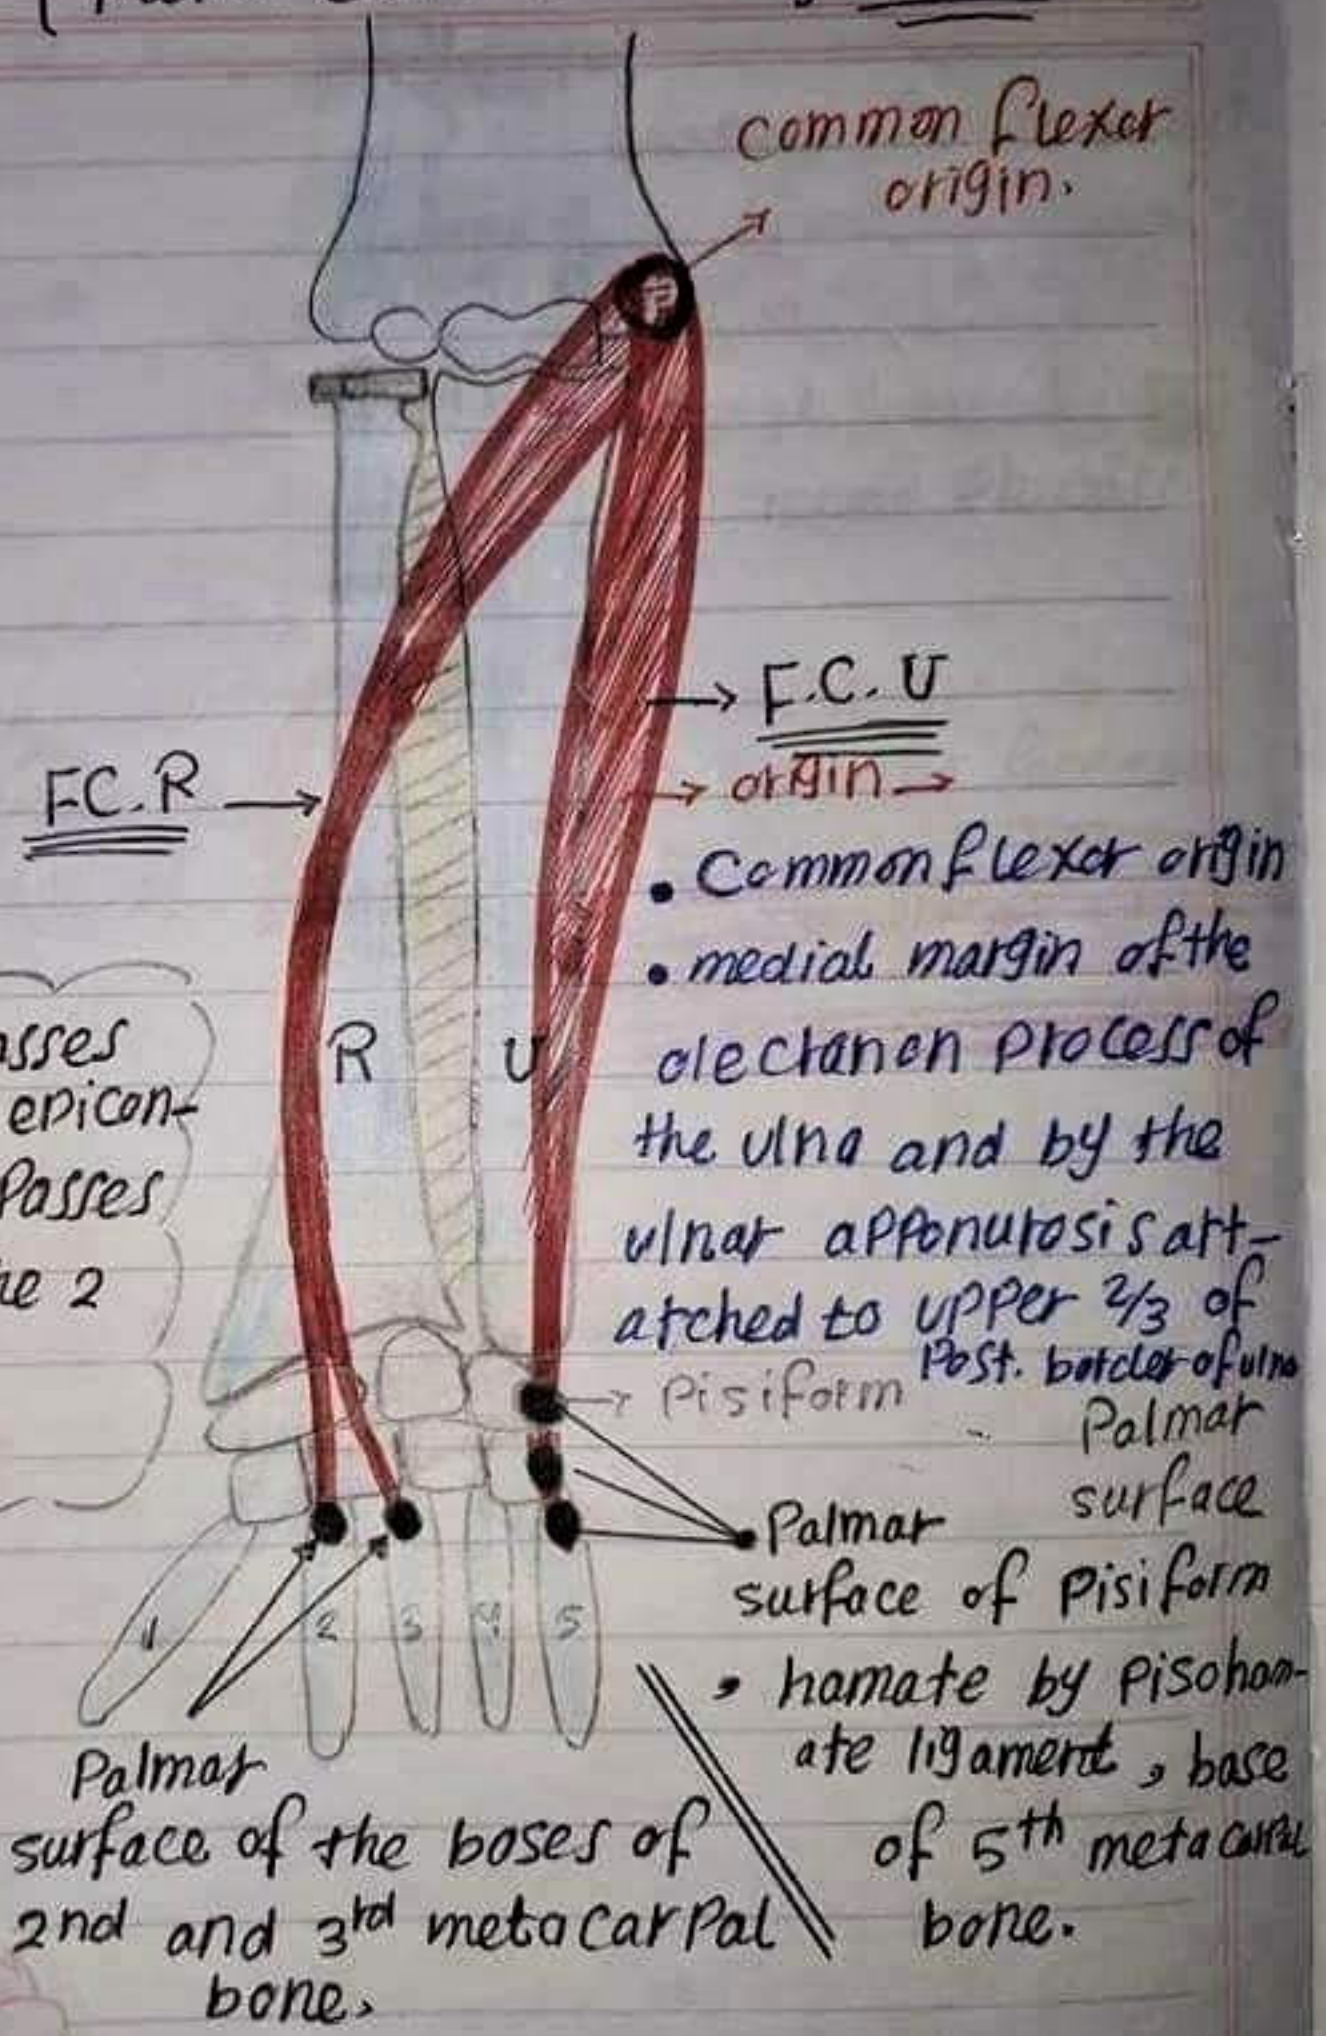 common flexor
origin.
F.C.U
origin
FC.R
• Common flexor origin
• medial margin of the
olecranon process of
the ulna and by the
ulnar apponurosis att-
atched to upper 2/3 of
Post. border of ulna
R
U
asses
epicon-
Passes
he 2
Pisiform
Palmar
surface
Palmar
surface of pisiform
, hamate by pisoham-
ate ligament, base
of 5th metacarpal
bone.
1 2 3 4 5
Palmar
surface of the bases of
2nd and 3rd metacarpal
bone,